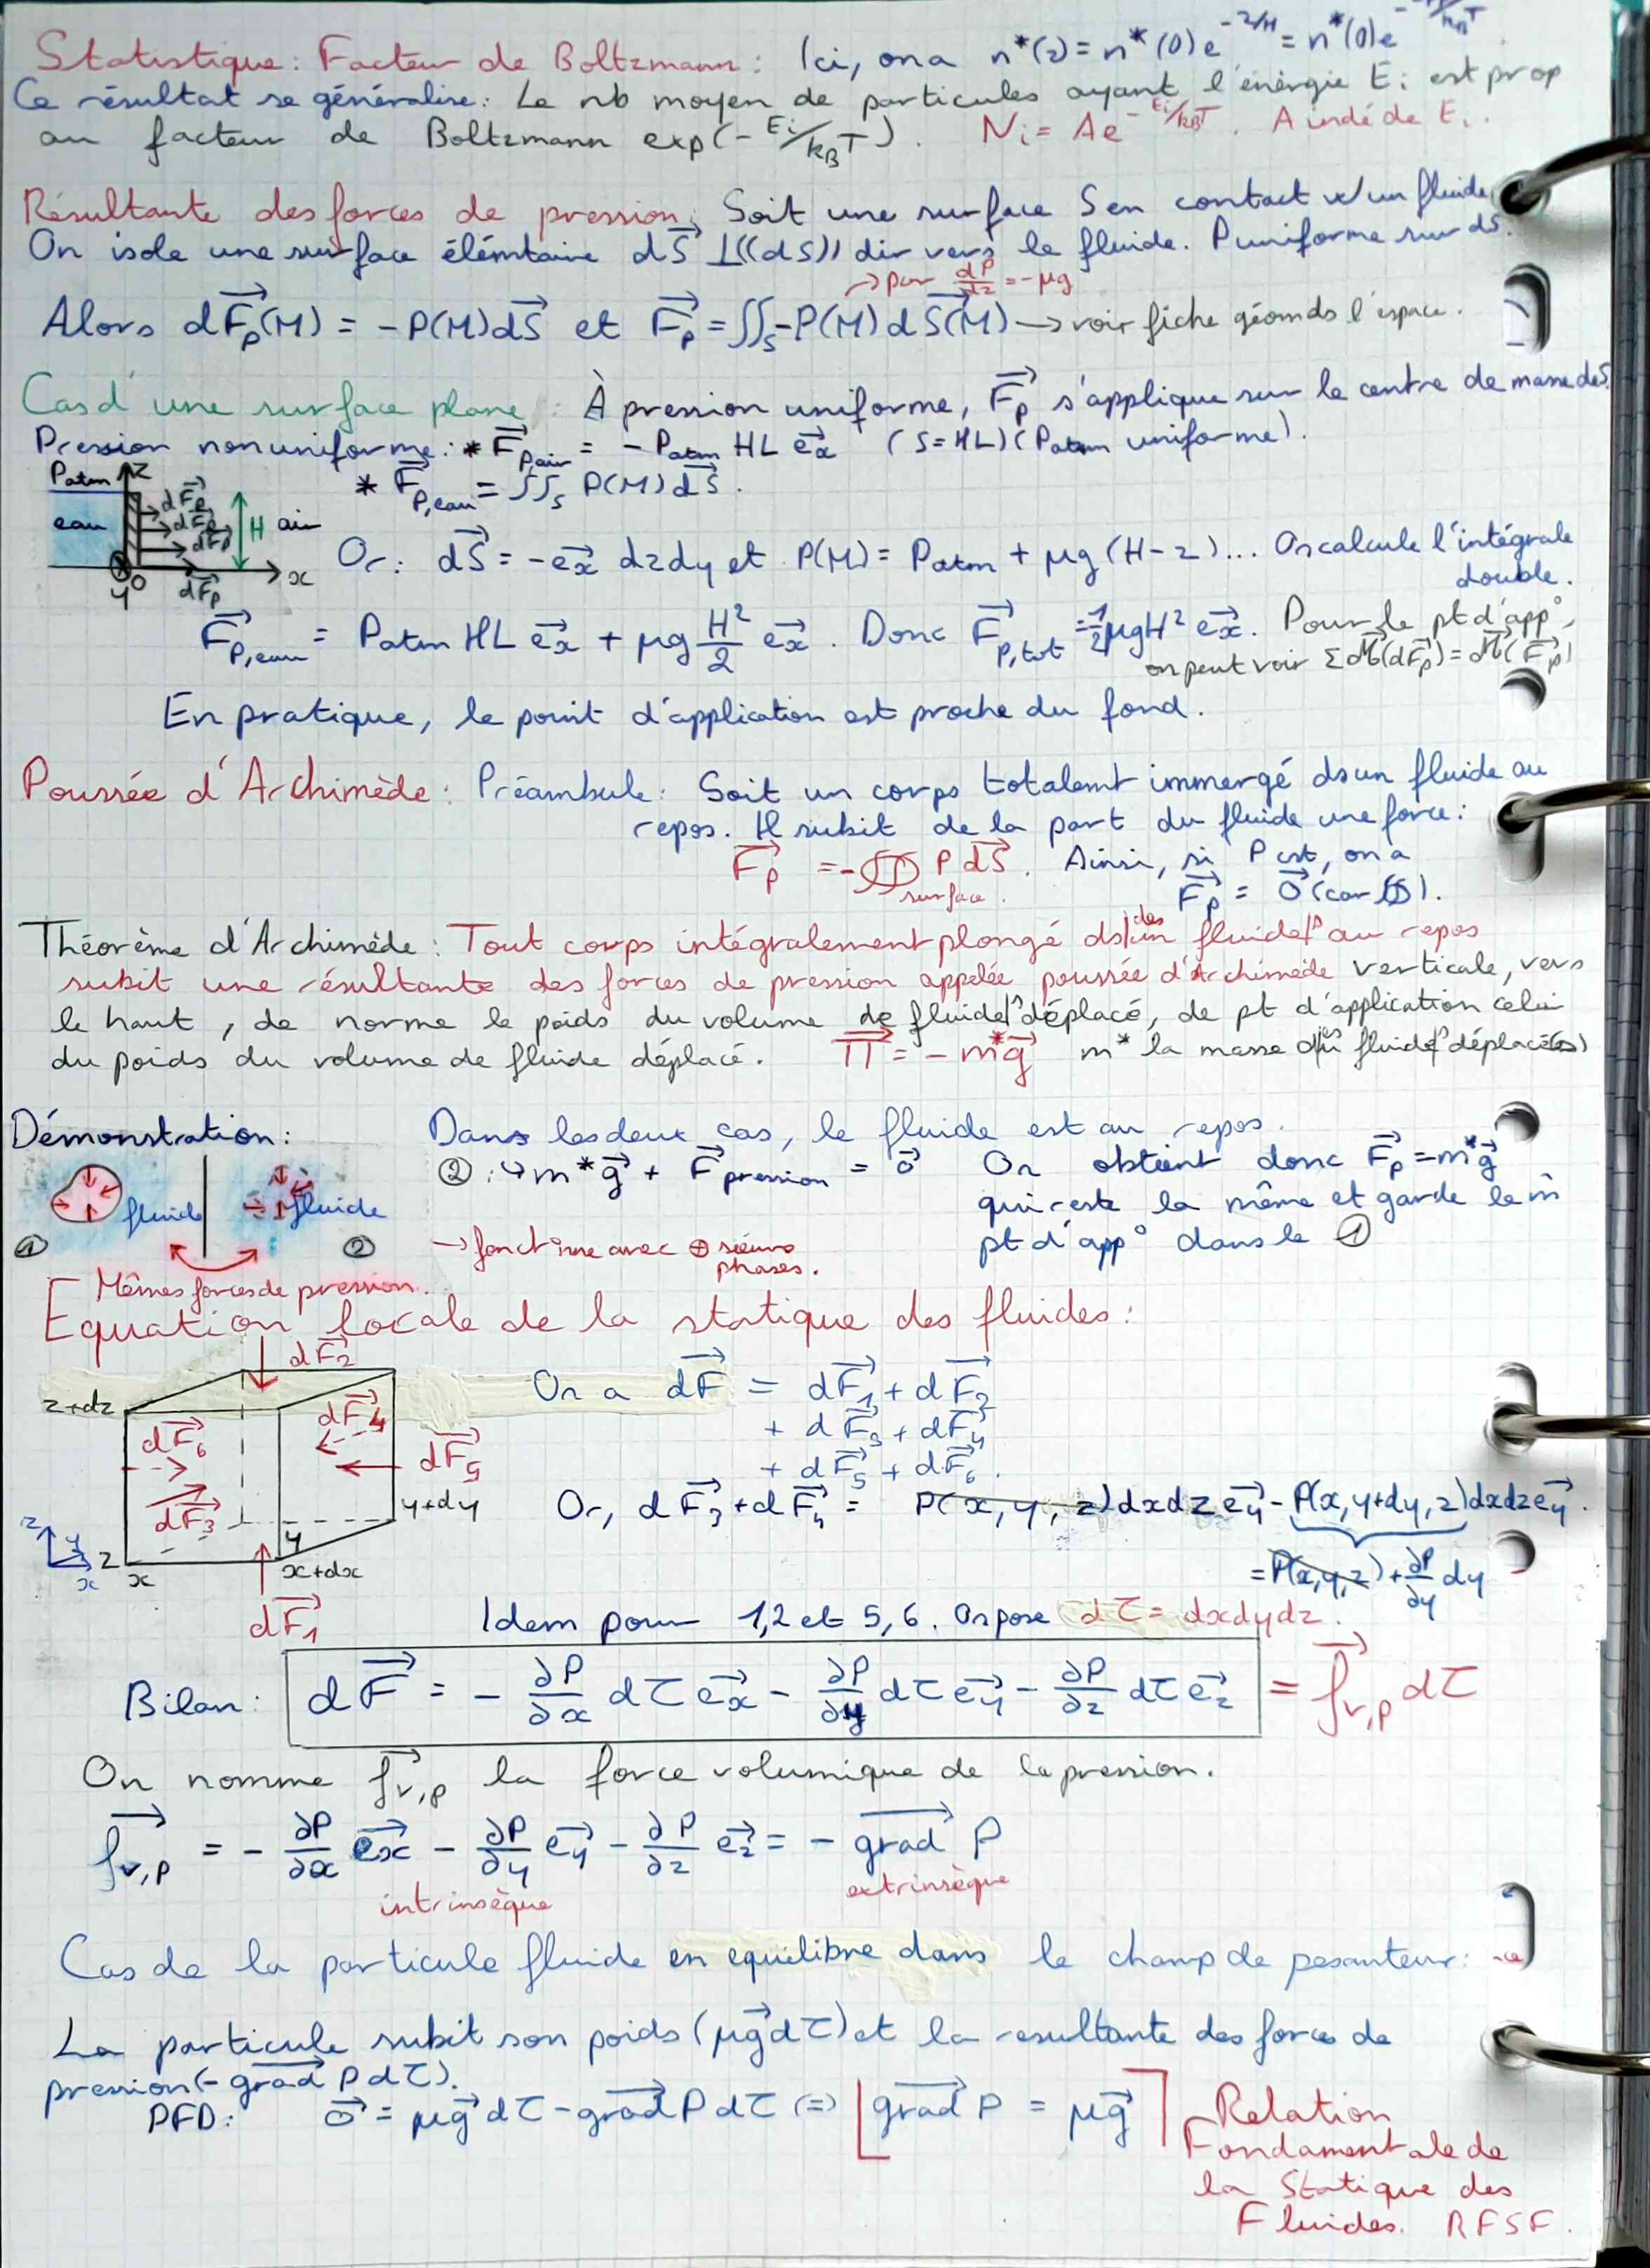 Statistique: Facteur de Boltzmann: Ici, on a n*(z) = n*(0) e^{-z/H} = n*(0)e
Ce résultat se généralise: Le nb moyen de particules ayant l'énergie Ei est prop
au facteur de Boltzmann exp(-Ei/kBT). Ni = Ae^{-Ei/kBT}. A indé de Ei.
Résultante des forces de pression: Soit une surface S en contact w/ un fluide
On isole une surface élémtaire dS⃗ ⊥((dS)) dir vers le fluide. P uniforme sur dS.
→ par dP/dz = -μg
Alors dF⃗p(M) = -P(M)dS⃗ et F⃗p = ∬_S -P(M)dS⃗(M) → voir fiche géom ds l'espace.
Cas d'une surface plane: À pression uniforme, F⃗p s'applique sur le centre de masse de S.
Pression non uniforme: * F⃗p,air = -Patm HL e⃗x (S=HL) (Patm uniforme).
* F⃗p,eau = ∬_S P(M)dS⃗.
Patm z
eau dF⃗p dF⃗p dF⃗p H air
y O dF⃗p x
Or: dS⃗ = -e⃗x dzdy et P(M) = Patm + μg(H-z)... On calcule l'intégrale
double.
F⃗p,eau = Patm HL e⃗x + μg H²/2 e⃗x. Donc F⃗p,tot = 1/2 μgH² e⃗x. Pour le pt d'app°,
on peut voir Σ M⃗(dF⃗p) = M⃗(F⃗p)
En pratique, le point d'application est proche du fond.
Poussée d'Archimède: Préambule: Soit un corps totalemt immergé ds un fluide au
repos. Il subit de la part du fluide une force:
F⃗p = -∯_surface P dS⃗. Ainsi, si P cst, on a
F⃗p = 0⃗ (car ∯).
Théorème d'Archimède: Tout corps intégralement plongé ds un/des fluide/s au repos
subit une résultante des forces de pression appelée poussée d'Archimède verticale, vers
le haut, de norme le poids du volume de fluide/s déplacé, de pt d'application celui
du poids du volume de fluide déplacé. Π⃗ = -m*g⃗ m* la masse du/des fluide/s déplacé(s)
Démonstration: Dans les deux cas, le fluide est au repos.
② : ↳ m*g⃗ + F⃗pression = 0⃗ On obtient donc F⃗p = m*g⃗
fluide fluide qui reste la même et garde le m̂
① ② → fonctionne avec ⊕sieurs pt d'app° dans le ①
phases.
Mêmes forces de pression.
Equation locale de la statique des fluides:
dF⃗2
z+dz On a dF⃗ = dF⃗1 + dF⃗2
dF⃗6 dF⃗4 + dF⃗3 + dF⃗4
dF⃗5 + dF⃗5 + dF⃗6.
dF⃗3 y+dy Or, dF⃗3 + dF⃗4 = P(x,y,z)dxdz e⃗y - P(x,y+dy,z)dxdz e⃗y.
z y x z x y x+dx
= P(x,y,z) + ∂P/∂y dy
dF⃗1 Idem pour 1,2 et 5,6. On pose dτ = dxdydz.
Bilan: dF⃗ = - ∂P/∂x dτ e⃗x - ∂P/∂y dτ e⃗y - ∂P/∂z dτ e⃗z = f⃗v,p dτ
On nomme f⃗v,p la force volumique de la pression.
f⃗v,p = - ∂P/∂x e⃗x - ∂P/∂y e⃗y - ∂P/∂z e⃗z = - grad⃗ P
intrinsèque extrinsèque
Cas de la particule fluide en equilibre dans le champ de pesanteur:
La particule subit son poids (μg⃗dτ) et la resultante des forces de
pression (- grad⃗ P dτ).
PFD: 0⃗ = μg⃗ dτ - grad⃗ P dτ (=) grad⃗ P = μg⃗ Relation
Fondamentale de
la Statique des
Fluides. RFSF.